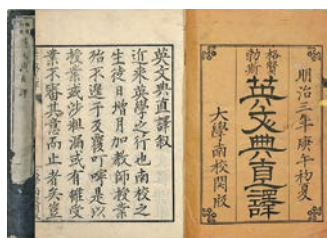 明治三年庚午初夏
格賢勃斯
英文典直譯
大學南校開版
英文典直譯叙
近來英學之行也南校之
生徒日增月加教師授業
殆不遑于反覆叮嚀是以
授業或涉粗漏或有雖受
業不審其意而止者矣豈